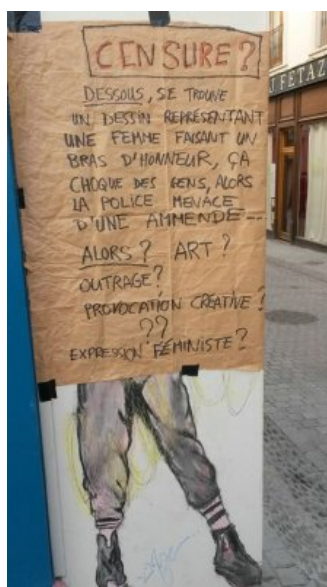 CENSURE?
DESSOUS, SE TROUVE
UN DESSIN REPRÉSENTANT
UNE FEMME FAISANT UN
BRAS D'HONNEUR, ÇA
CHOQUE DES GENS, ALORS
LA POLICE MENACE
D'UNE AMMENDE...
ALORS? ART?
OUTRAGE?
PROVOCATION CRÉATIVE?
??
EXPRESSION FÉMINISTE?
FETAZ